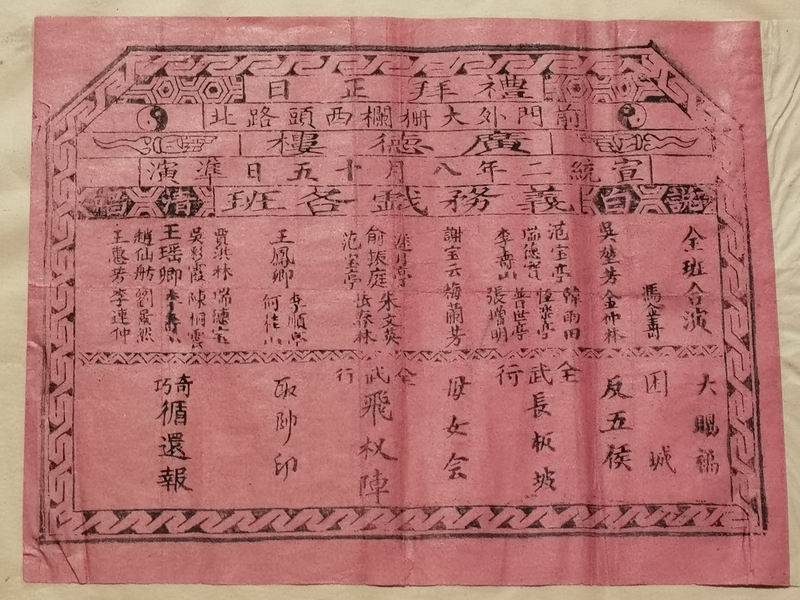 禮拜正日
前門外大柵欄西頭路北
廣德樓
宣統二年八月十五日準演
諸位 義務戲各班
全班合演
大賜福
馮金壽
困城
吳堃芳 金仲林
反五侯
范宝亭 韓雨田
瑞德宝 恒樂亭
李壽山 普世亭
張增明
全武行
長板坡
謝宝云 梅蘭芳
母女会
遲月亭 朱文英
俞振庭
范宝亭 張春林
全武行
飛杈陣
王鳳卿 李順亭
何佳山
取帥印
賈洪林 瑞德宝
吳彩霞 陳桐雲
王瑶卿 李壽山
趙仙舫 劉景然
王蕙芳 李連仲
奇巧
循還報